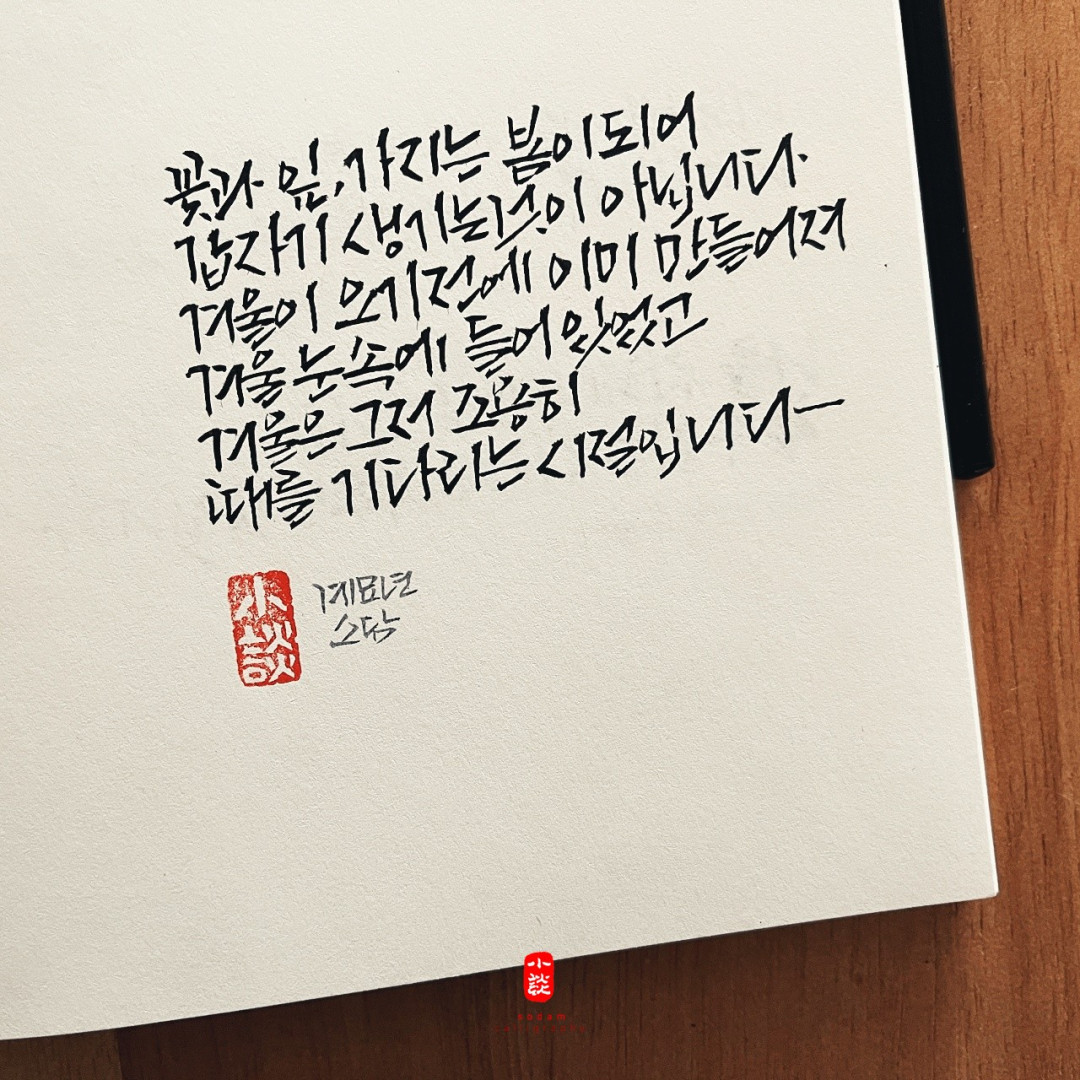 꽃과 잎, 가지는 봄이 되어
갑자기 생기는것이 아닙니다.
겨울이 오기전에 이미 만들어져
겨울 눈속에 들어 있었고
겨울은 그저 조용히
때를 기다리는 시절입니다
小談
계묘년
소담
小談
sodam